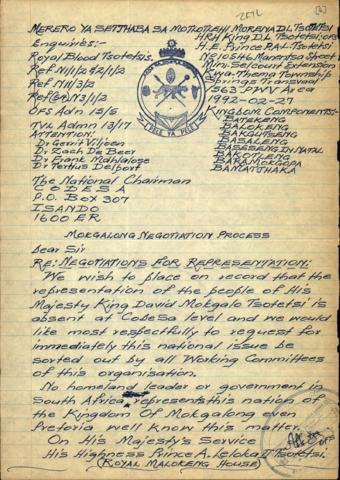 MERERO YA SETJHABA SA MOTKOTJEHI MOREIYA D.L. TSOTETSI
Enquiries:-
Royal Blood Tsotetsi.
HRH King D.L. Tsotetsi
H.E. Prince R.A.L. Tsotetsi
No 10546 Manentsa Street
Mini-Selcourt Extension
Kwa-Thema Township
Springs Transvaal
1563 PWV Area
1992-02-27
Ref N1/1/2
Ref N11/3/2
N3/1/2
OFS Admn 15/5
TVL Admn 13/17
PULE YA PELE
ATTENTION:
Dr Gerrit Viljoen
Dr Zach De Beer
Dr Frank Mdhlalose
Dr Tertius Delport
KINGDOM COMPONENTS:
BATEKENG
BALOKENG
BAKGUTSENG
BASALENG
BASEBENG IN NATAL
BAKOTLENG
BARAMOKGOPA
BAMATJHAKA
The National Chairman
CODESA
P.O. BOX 307
ISANDO
1600 ER
MOKGALONG NEGOTIATION PROCESS
Dear Sir
RE: NEGOTIATIONS FOR REPRESENTATION:
We wish to place on record that the
representation of the people of His
Majesty King David Mokgalo Tsotetsi is
absent at Codesa level and we would
like most respectfully to request for
immediately this national issue be
sorted out by all Working Committees
of this organisation.
No homeland leader or government in
South Africa represents this nation of
the Kingdom Of Mokgalong even
Pretoria well know this matter.
On His Majesty's Service
His Highness Prince A. Leloka II Tsotetsi
(ROYAL MALOKENG HOUSE)